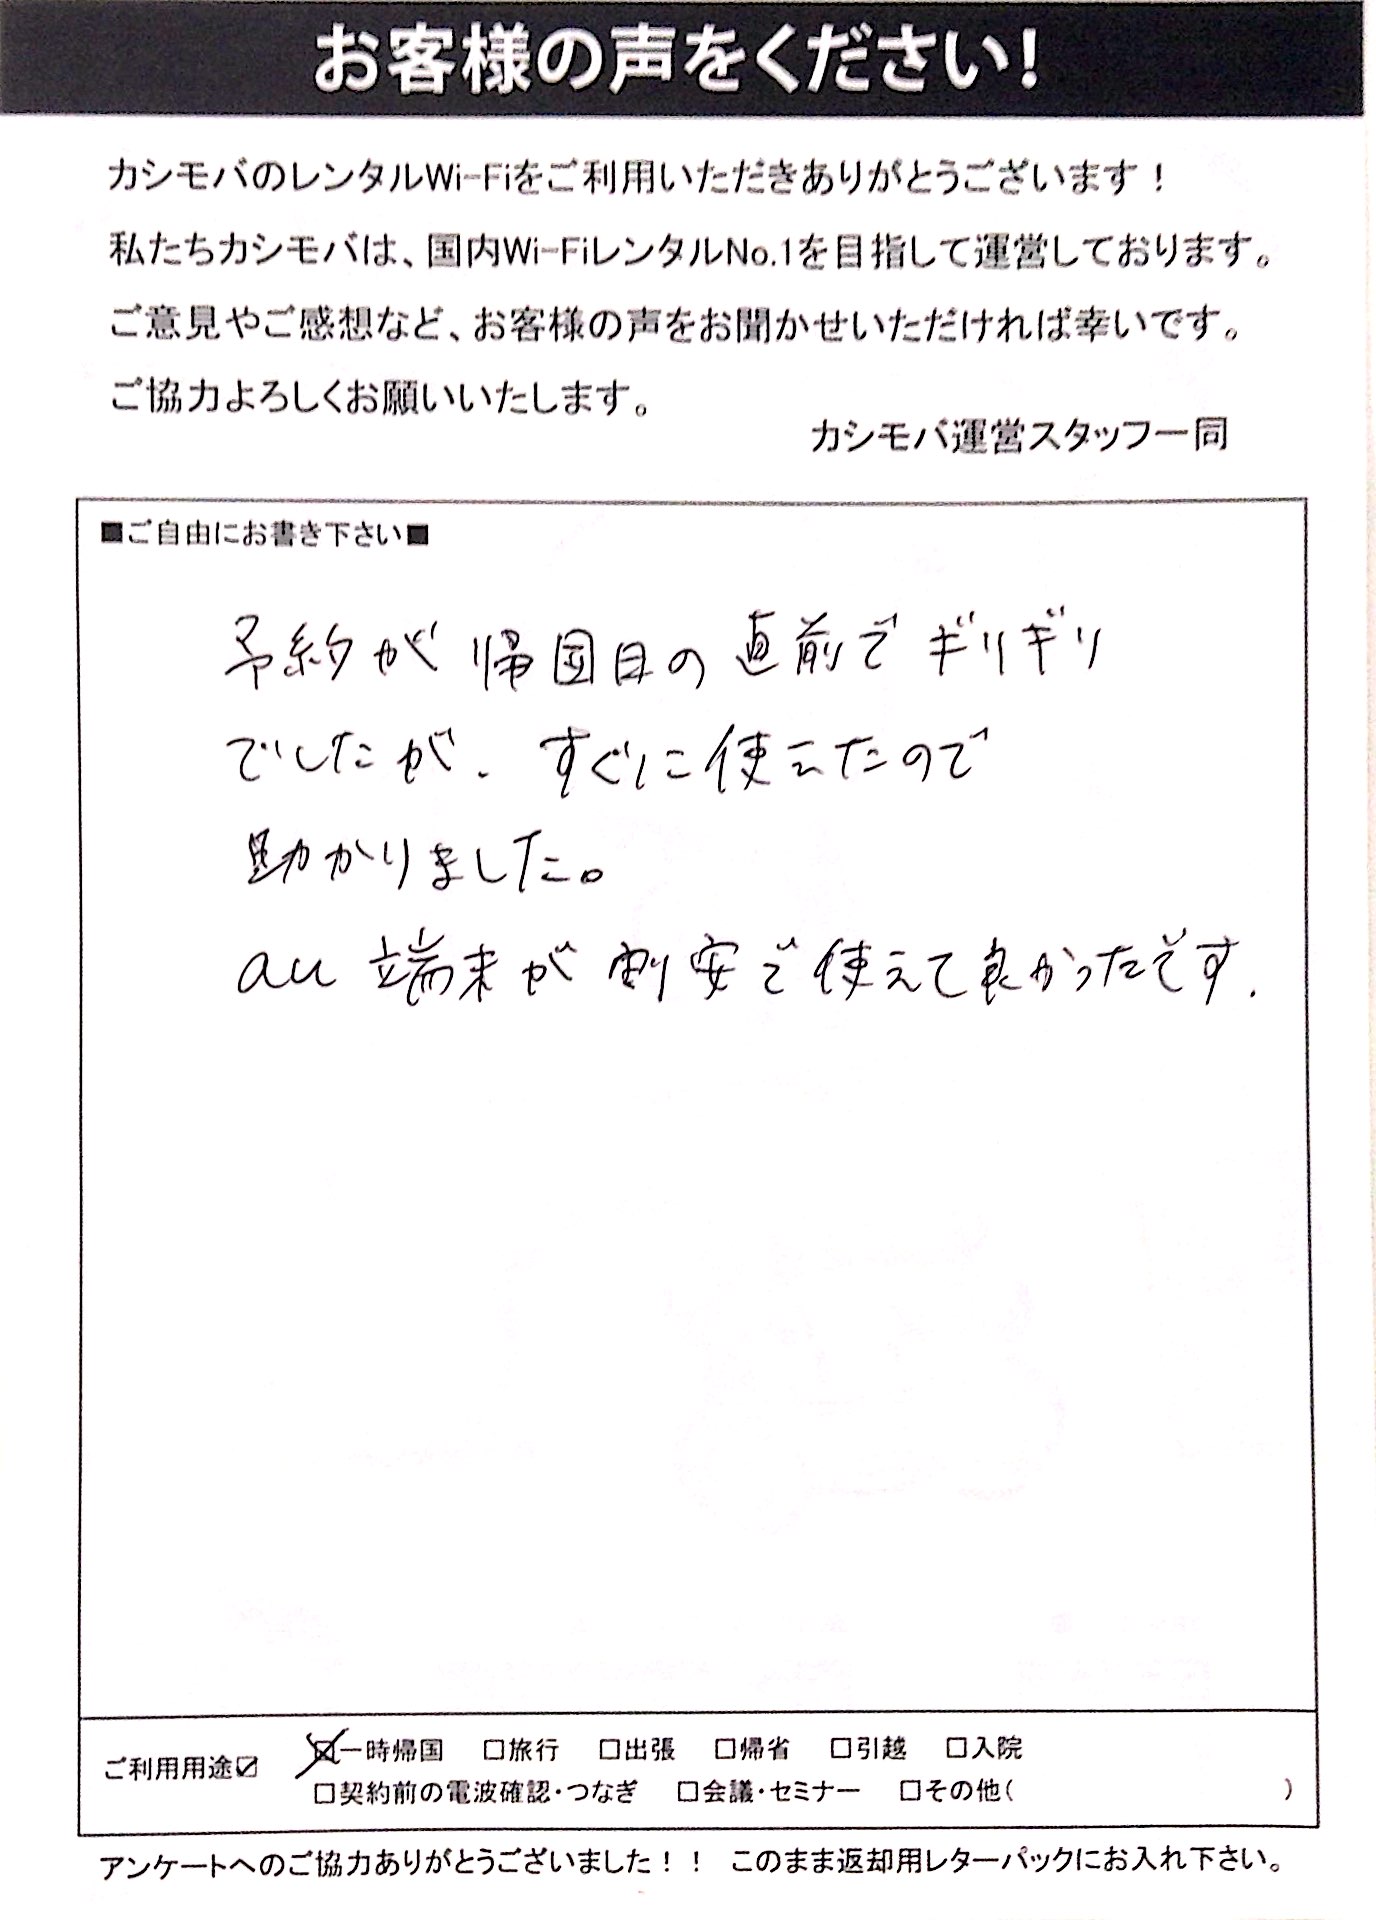 お客様の声をください!
カシモバのレンタルWi-Fiをご利用いただきありがとうございます！
私たちカシモバは、国内Wi-FiレンタルNo.1を目指して運営しております。
ご意見やご感想など、お客様の声をお聞かせいただければ幸いです。
ご協力よろしくお願いいたします。
カシモバ運営スタッフ一同
■ご自由にお書き下さい■
予約が帰国日の直前でギリギリ
でしたが、すぐに使えたので
助かりました。
au端末が割安で使えて良かったです.
ご利用用途☑ ☒一時帰国 □旅行 □出張 □帰省 □引越 □入院
□契約前の電波確認・つなぎ □会議・セミナー □その他( )
アンケートへのご協力ありがとうございました！！ このまま返却用レターパックにお入れ下さい。